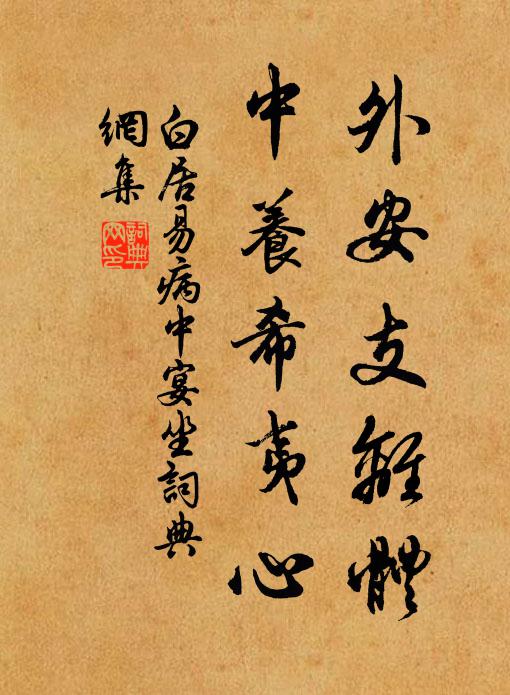 外安支離體
中養希夷心
白居易病中宴坐詞典
網集
詞典
网印